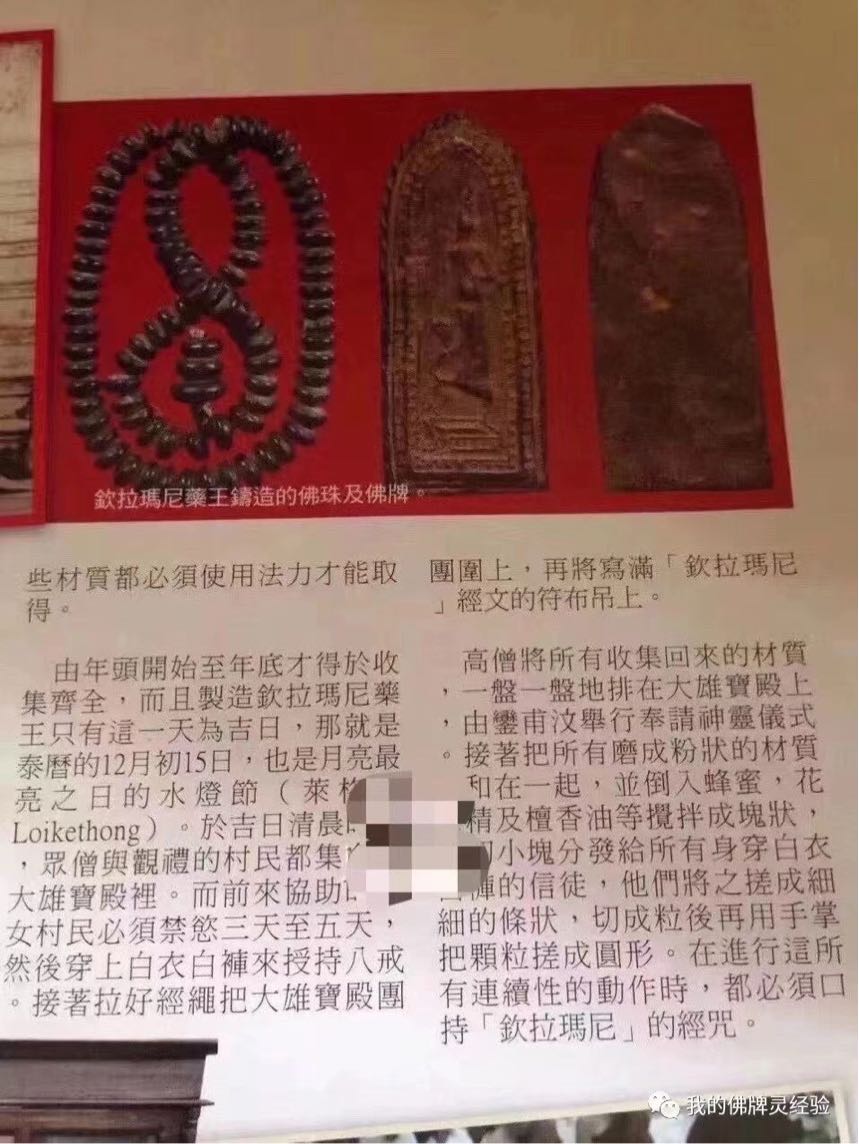 欽拉瑪尼藥王鑄造的佛珠及佛牌。
些材質都必須使用法力才能取
得。
由年頭開始至年底才得於收
集齊全，而且製造欽拉瑪尼藥
王只有這一天為吉日，那就是
泰曆的12月初15日，也是月亮最
亮之日的水燈節（萊
Loikethong）。於吉日清晨
，眾僧與觀禮的村民都集
大雄寶殿裡。而前來協助
女村民必須禁慾三天至五天，
然後穿上白衣白褲來授持八戒
。接著拉好經繩把大雄寶殿團
團圍上，再將寫滿「欽拉瑪尼
」經文的符布吊上。
高僧將所有收集回來的材質
，一盤一盤地排在大雄寶殿上
，由鑾甫汶舉行奉請神靈儀式
。接著把所有磨成粉狀的材質
和在一起，並倒入蜂蜜，花
精及檀香油等攪拌成塊狀，
小塊分發給所有身穿白衣
褲的信徒，他們將之搓成細
細的條狀，切成粒後再用手掌
把顆粒搓成圓形。在進行這所
有連續性的動作時，都必須口
持「欽拉瑪尼」的經咒。
我的佛牌灵经验